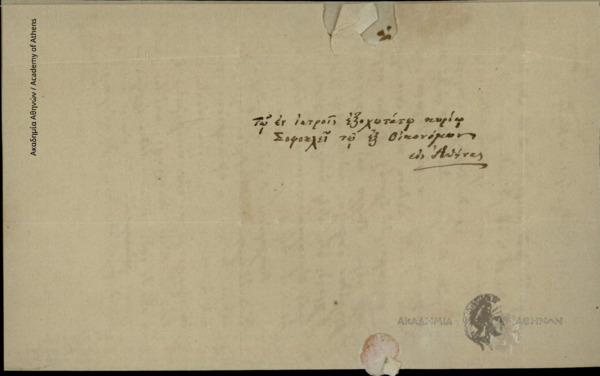 Ακαδημία Αθηνών / Academy of Athens
Τῷ ἐν ἰατροῖς ἐξοχωτάτῳ κυρίῳ
Σοφοκλεῖ τῷ ἐξ Οἰκονόμων
εἰς Ἀθήνας
ΑΚΑΔΗΜΙΑ ΑΘΗΝΩΝ